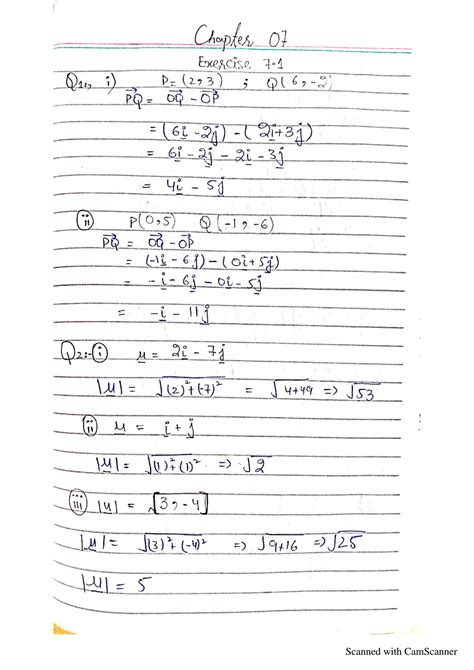 Chapter 07
Exercise 7-1
Q1., i) P=(2,3) ; Q(6,-2)
PQ = OQ - OP
=(6i-2j)-(2i+3j)
= 6i-2j-2i-3j
= 4i-5j
(ii) P(0,5) Q(-1,-6)
PQ = OQ-OP
= (-1i-6j)-(0i+5j)
= -i-6j-0i-5j
= -i-11j
Q2:-(i) u = 2i-7j
|u| = √(2)²+(-7)² = √4+49 => √53
(ii) u = i+j
|u| = √(1)²+(1)² => √2
(iii) |u| = [3,-4]
|u| = √(3)²+(-4)² => √9+16 => √25
|u| = 5
Scanned with CamScanner